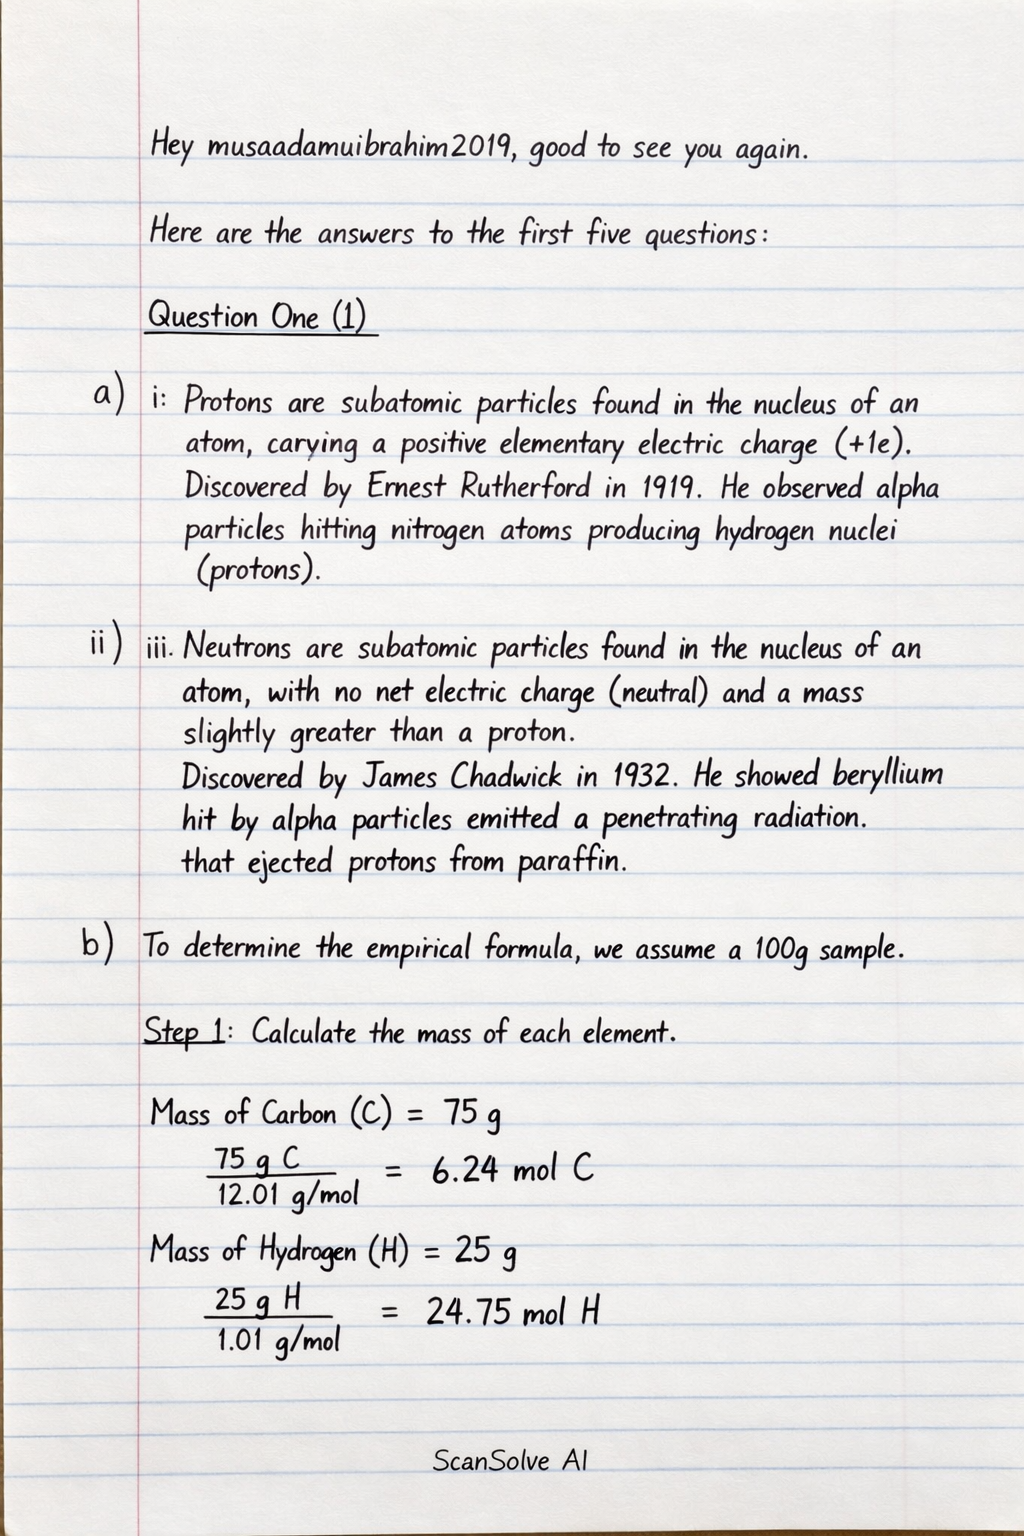 Hey musaadamuibrahim2019, good to see you again.
Here are the answers to the first five questions:
Question One (1)
a) i: Protons are subatomic particles found in the nucleus of an
atom, carying a positive elementary electric charge (+1e).
Discovered by Ernest Rutherford in 1919. He observed alpha
particles hitting nitrogen atoms producing hydrogen nuclei
(protons).
ii) iii. Neutrons are subatomic particles found in the nucleus of an
atom, with no net electric charge (neutral) and a mass
slightly greater than a proton.
Discovered by James Chadwick in 1932. He showed beryllium
hit by alpha particles emitted a penetrating radiation.
that ejected protons from paraffin.
b) To determine the empirical formula, we assume a 100g sample.
Step 1: Calculate the mass of each element.
Mass of Carbon (C) = 75 g
75 g C
= 6.24 mol C
12.01 g/mol
Mass of Hydrogen (H) = 25 g
25 g H
= 24.75 mol H
1.01 g/mol
ScanSolve AI